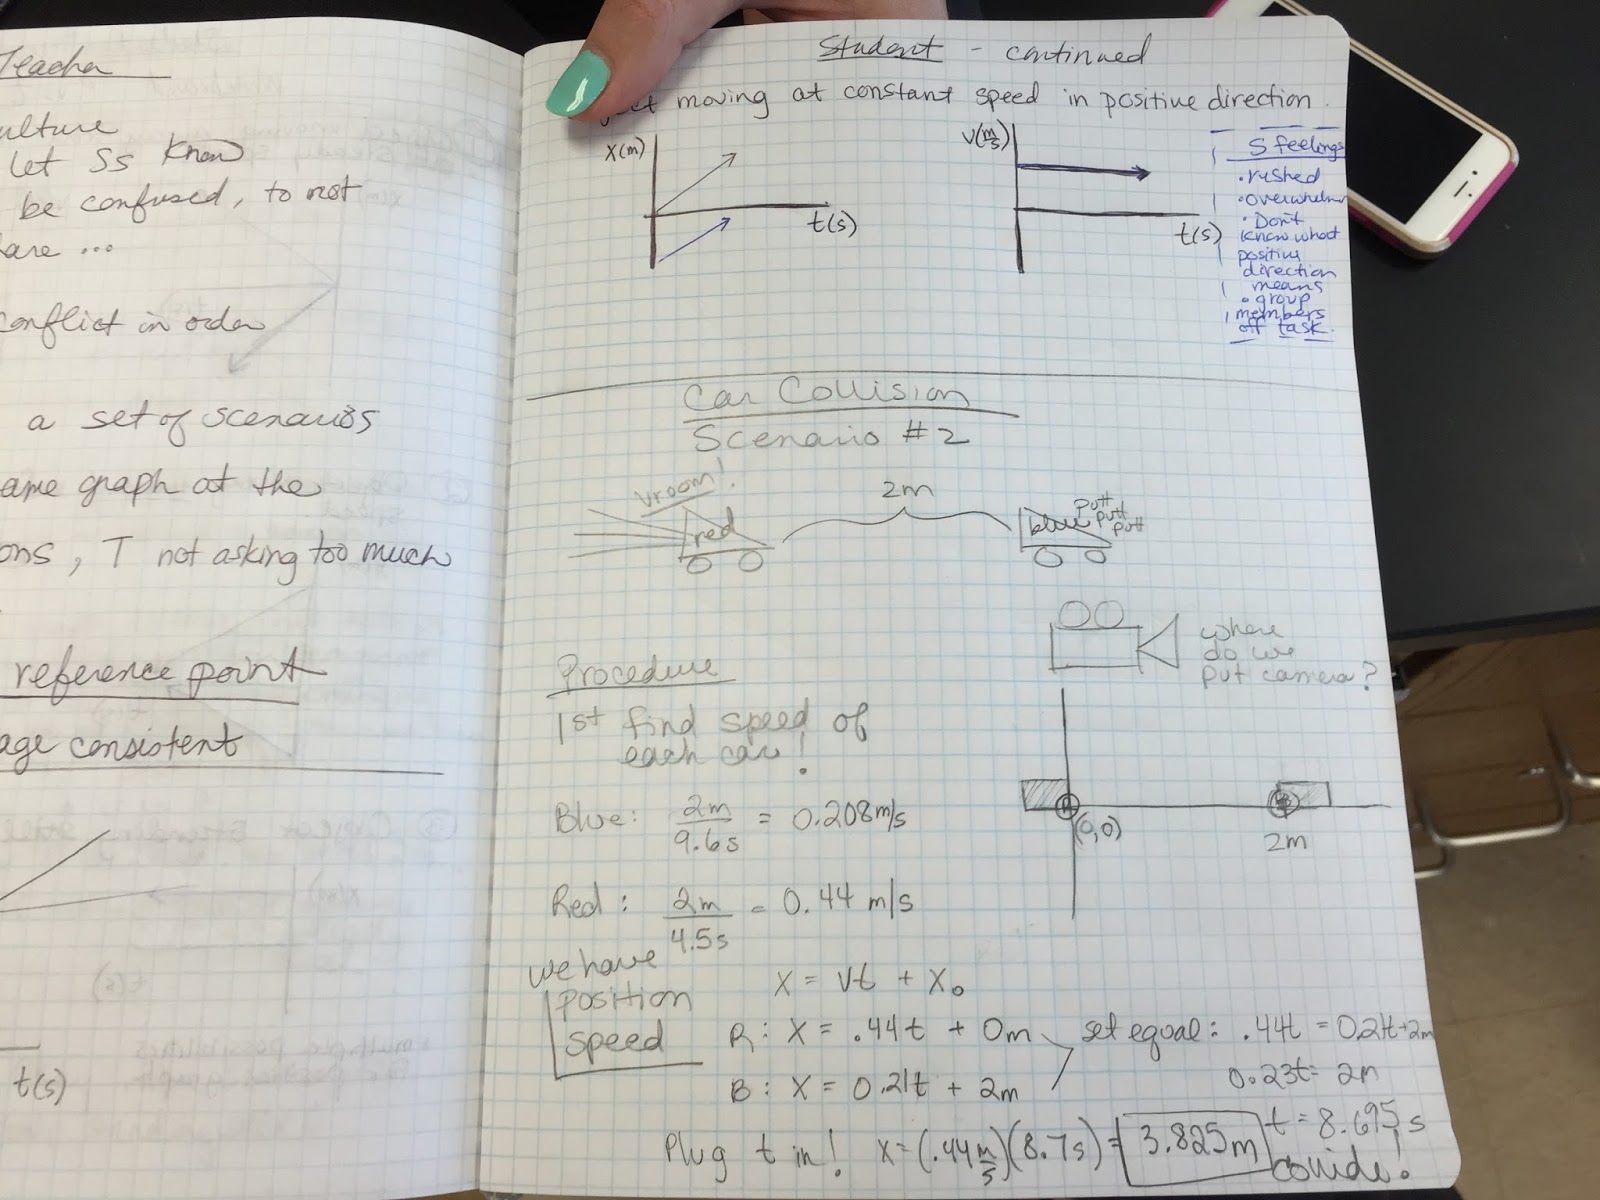 Teacher
ulture
let Ss know
be confused, to not
are ...
conflict in order
a set of scenarios
ame graph at the
ons, T not asking too much
reference point
age consistent
t(s)
Student - continued
moving at constant speed in positive direction.
X(m)
t(s)
V(m/s)
t(s)
S feelings
• rushed
• overwhelm
• Don't
know what
positive
direction
means
• group
members
off task.
Car Collision
Scenario #2
vroom!
red
2m
blue
putt
putt
putt
where
do we
put camera?
Procedure
1st find speed of
each car!
(0,0)
2m
Blue: 2m/9.6s = 0.208 m/s
Red: 2m/4.5s = 0.44 m/s
we have
position
speed
X = Vt + X₀
R: X = .44t + 0m
B: X = 0.21t + 2m
set equal: .44t = 0.21t+2m
0.23t = 2m
t = 8.695 s
collide!
Plug t in! X = (.44 m/s)(8.7s) = 3.825m